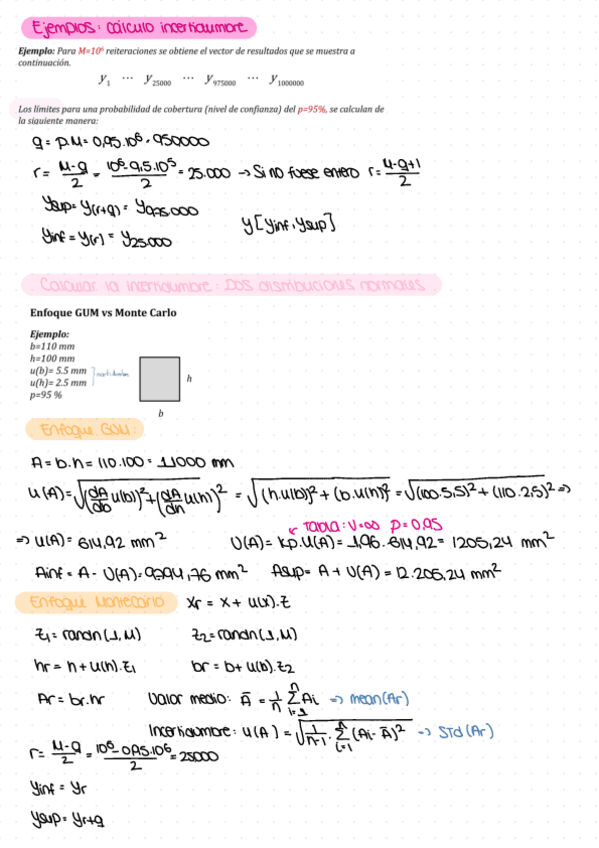 Ejemplos: cálculo incertidumbre
Ejemplo: Para M=10⁶ reiteraciones se obtiene el vector de resultados que se muestra a
continuación.
y₁ ⋯ y₂₅₀₀₀ ⋯ y₉₇₅₀₀₀ ⋯ y₁₀₀₀₀₀₀
Los límites para una probabilidad de cobertura (nivel de confianza) del p=95%, se calculan de
la siguiente manera:
q = p.M = 0,95.10⁶ = 950000
r = (M-q)/2 = (10⁶-9,5.10⁵)/2 = 25.000 → Si no fuese entero r = (M-q+1)/2
Ysup = Y(r+q) = Y975.000
Yinf = Y(r) = Y25.000
y [Yinf, Ysup]
Calcular la incertidumbre: Dos distribuciones normales
Enfoque GUM vs Monte Carlo
Ejemplo:
b=110 mm
h=100 mm
u(b)= 5.5 mm
u(h)= 2.5 mm
incertidumbres
p=95 %
h
b
Enfoque GUM:
A = b.h = 110.100 = 11000 mm
u(A) = √((dA/db u(b))² + (dA/dh u(h))²) = √((h.u(b))² + (b.u(h))²) = √((100.5,5)² + (110.2,5)²) ⇒
↙ Tabla: V=∞ p=0,95
⇒ u(A) = 614,92 mm² U(A) = kp.u(A) = 1,96.614,92 = 1205,24 mm²
Ainf = A - U(A) = 9794,76 mm² Asup = A + U(A) = 12.205,24 mm²
Enfoque Montecarlo Xr = x + u(x).z
z₁ = randn(1,M) z₂ = randn(1,M)
hr = h + u(h).z₁ br = b + u(b).z₂
Ar = br.hr Valor medio: Ā = 1/n Σⁿᵢ₌₁ Ai ⇒ mean(Ar)
Incertidumbre: u(A) = √(1/(n-1) . Σⁿᵢ₌₁ (Ai - Ā)²) → std(Ar)
r = (M-q)/2 = (10⁶-0,95.10⁶)/2 = 25000
Yinf = Yr
Ysup = Yr+q